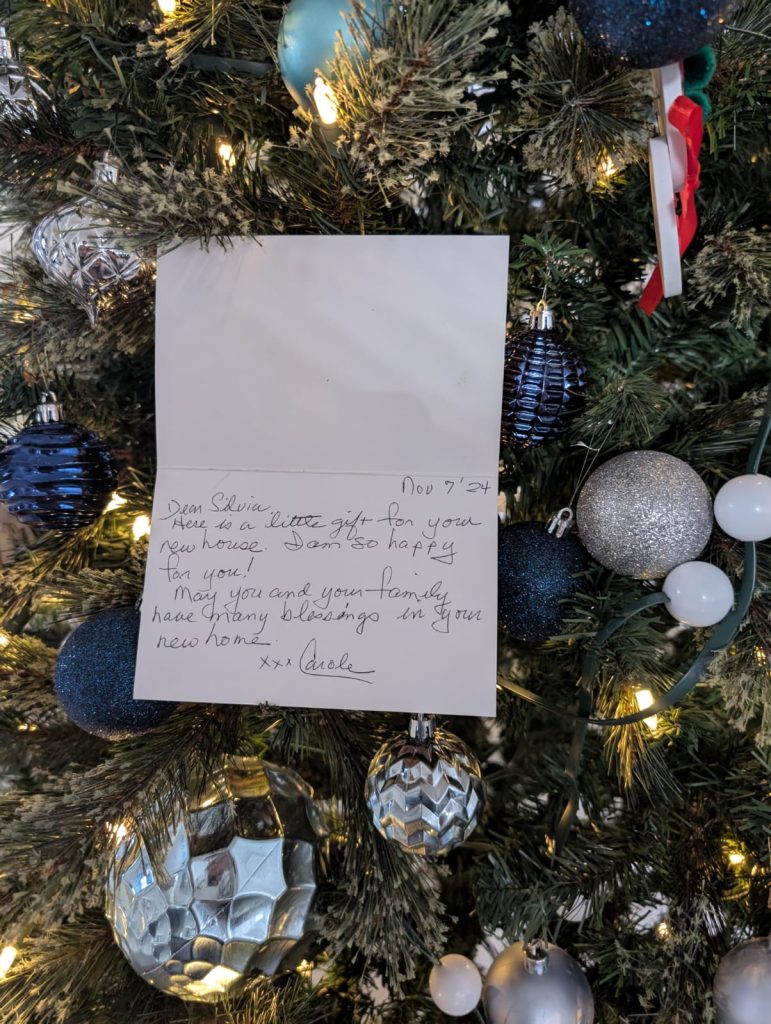 Nov 7 '24
Dear Silvia.
Here is a little gift for your
new house. I am so happy
for you!
May you and your family
have many blessings in your
new home.
xxx Carole